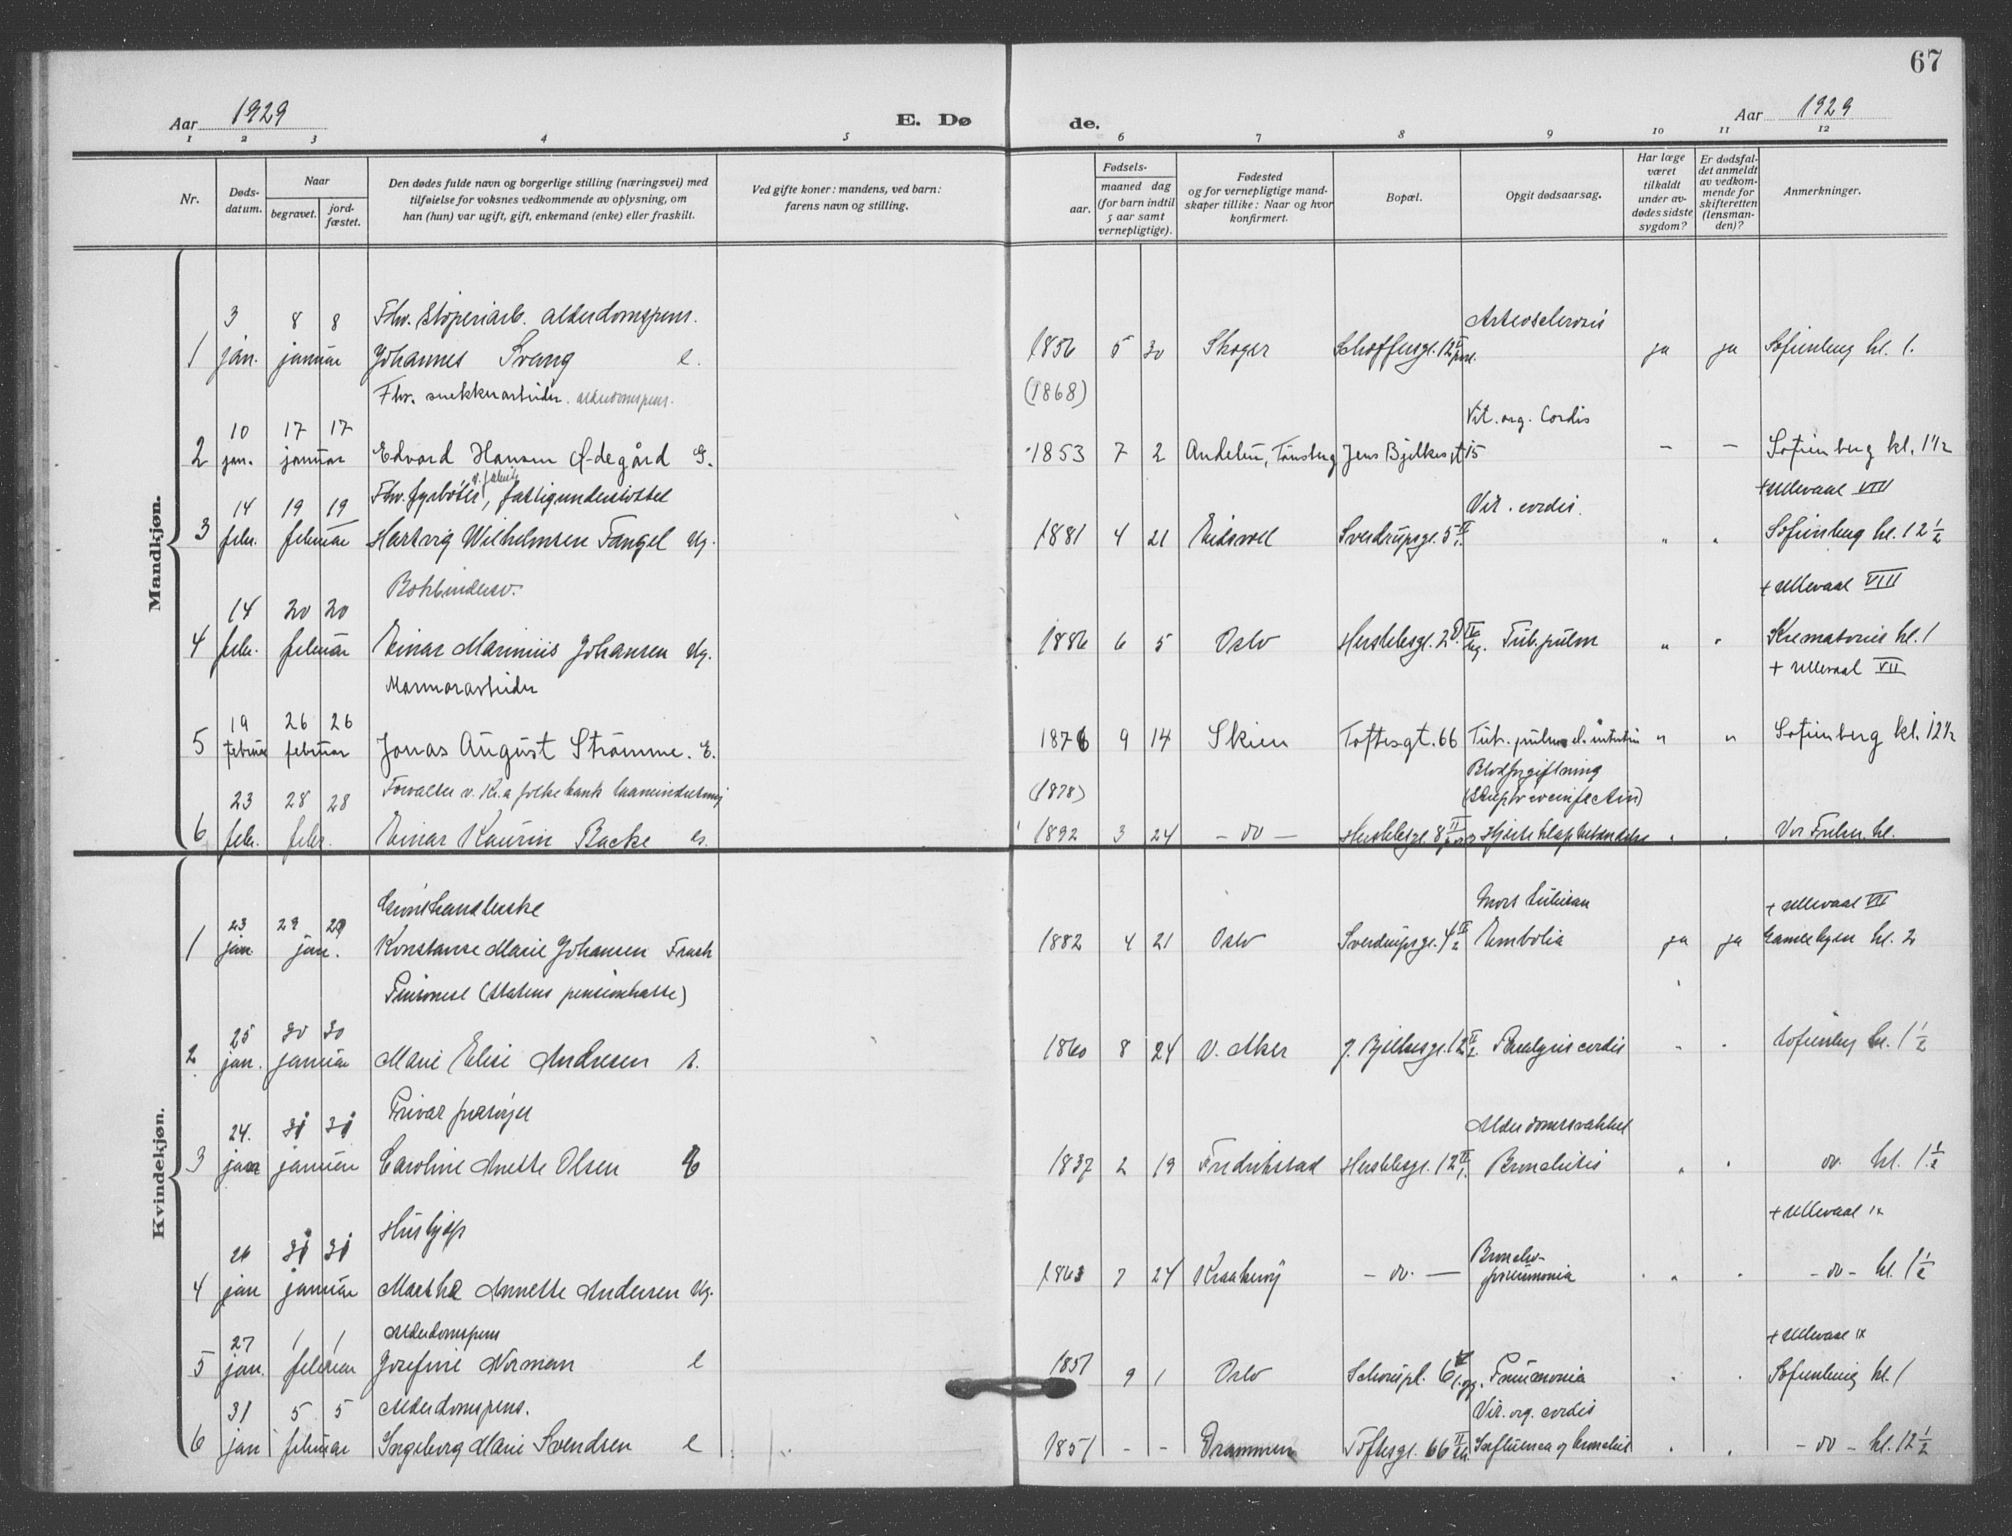 67
Aar 1929
E. Døde.
Aar 1929
1 2 3 4 5 6 7 8 9 10 11 12
Nr.
Døds-
datum.
Naar
begravet.
jord-
fæstet.
Den dødes fulde navn og borgerlige stilling (næringsvei) med
tilføielse for voksnes vedkommende av oplysning, om
han (hun) var ugift, gift, enkemand (enke) eller fraskilt.
Ved gifte koner: mandens, ved barn:
farens navn og stilling.
Fødsels-
aar.
maaned dag
(for barn indtil
5 aar samt
vernepligtige).
Fødested
og for vernepligtige mand-
skaper tillike: Naar og hvor
konfirmert.
Bopæl.
Opgit dødsaarsag.
Har læge
været
tilkaldt
under av-
dødes sidste
sygdom?
Er dødsfal-
det anmeldt
av vedkom-
mende for
skifteretten
(lensman-
den)?
Anmerkninger.
Mandkjøn.
3 8 8 Fhv. støperiarb. alderdomspens. Arteosclerosis
1 jan. januar Johannes Svang e. 1856 5 30 Skoger ja ja Sofienberg kl. 1.
Fhv. snekkerarbeider. alderdomspens. (1868)
10 17 17 Vit. org. Cordis
2 jan. januar Edvard Hansen Ødegård G. 1853 7 2 Andebu, Tønsberg Jens Bjelkesgt 15 — — Sofienberg kl. 1 1/2
14 19 19 Fhv. fyrbøter, fattigunderstøttet Vit. cordis. + Ullevaal VIII
3 febr. februar Hartvig Wilhelmsen Tangel Ug. 1881 4 21 Eidsvoll Sverdrupsgt. 5 " " Sofienberg kl. 12 1/2
14 20 20 Bokbindersv. + Ullevaal VIII
4 febr. februar Einar Marinius Johansen Ug. 1886 6 5 Oslo Herslebsgt. 2 Tub. pulm " " Krematoriet kl. 1
Marmorarbeider + Ullevaal VII
19 26 26
5 februar februar Jonas August Strømme. E. 1876 9 14 Skien Toftesgt. 66 Tub. pulm " " Sofienberg kl. 12 1/2
23 28 28 Forvalter v. Kr.a folkebank (1878) Blodforgiftning
6 febr. febr. Einar Kaurin Backe 1892 3 24 — do — Herslebsgt. 8 " " Vor Frelser kl.
Kvindekjøn.
23 29 29 Grønthandlerske + Ullevaal VII
1 jan jan. Konstanse Marie Johansen Frask 1882 4 21 Oslo Sverdrupsgt. 4 Embolia ja ja Gamlebyen kl. 2
25 30 30 Pensionist (statens pensionskasse)
2 jan. januar Marie Elise Andresen E. 1860 8 24 V. Aker J. Bjelkesgt. 12 Paralysis cordis " " Sofienberg kl. 1 1/2
24. 31 31 Privat forsørget Alderdomssvakhet
3 jan januar Caroline Anette Olsen E 1837 2 19 Fredrikstad Herslebsgt. 12 Bronchitis " " do. kl. 1 1/2
26 31 31 Hushjelp Broncho- + Ullevaal IX
4 jan januar Martha Annette Andersen Ug. 1863 7 24 Kraakerøy — do. — pneumonia " " — do — kl. 1 1/2
27 1 1 Alderdomspens + Ullevaal IX
5 jan. februar Josefine Norman e 1851 9 1 Oslo Schouspl. 6 Pneumonia " " Sofienberg kl. 1
31 5 5 Alderdomspens. Vit. org. cordis
6 jan februar Ingeborg Marie Svendsen e 1851 - - Drammen Toftesgt. 66 Influensa og bronchit " " — do — kl. 12 1/2